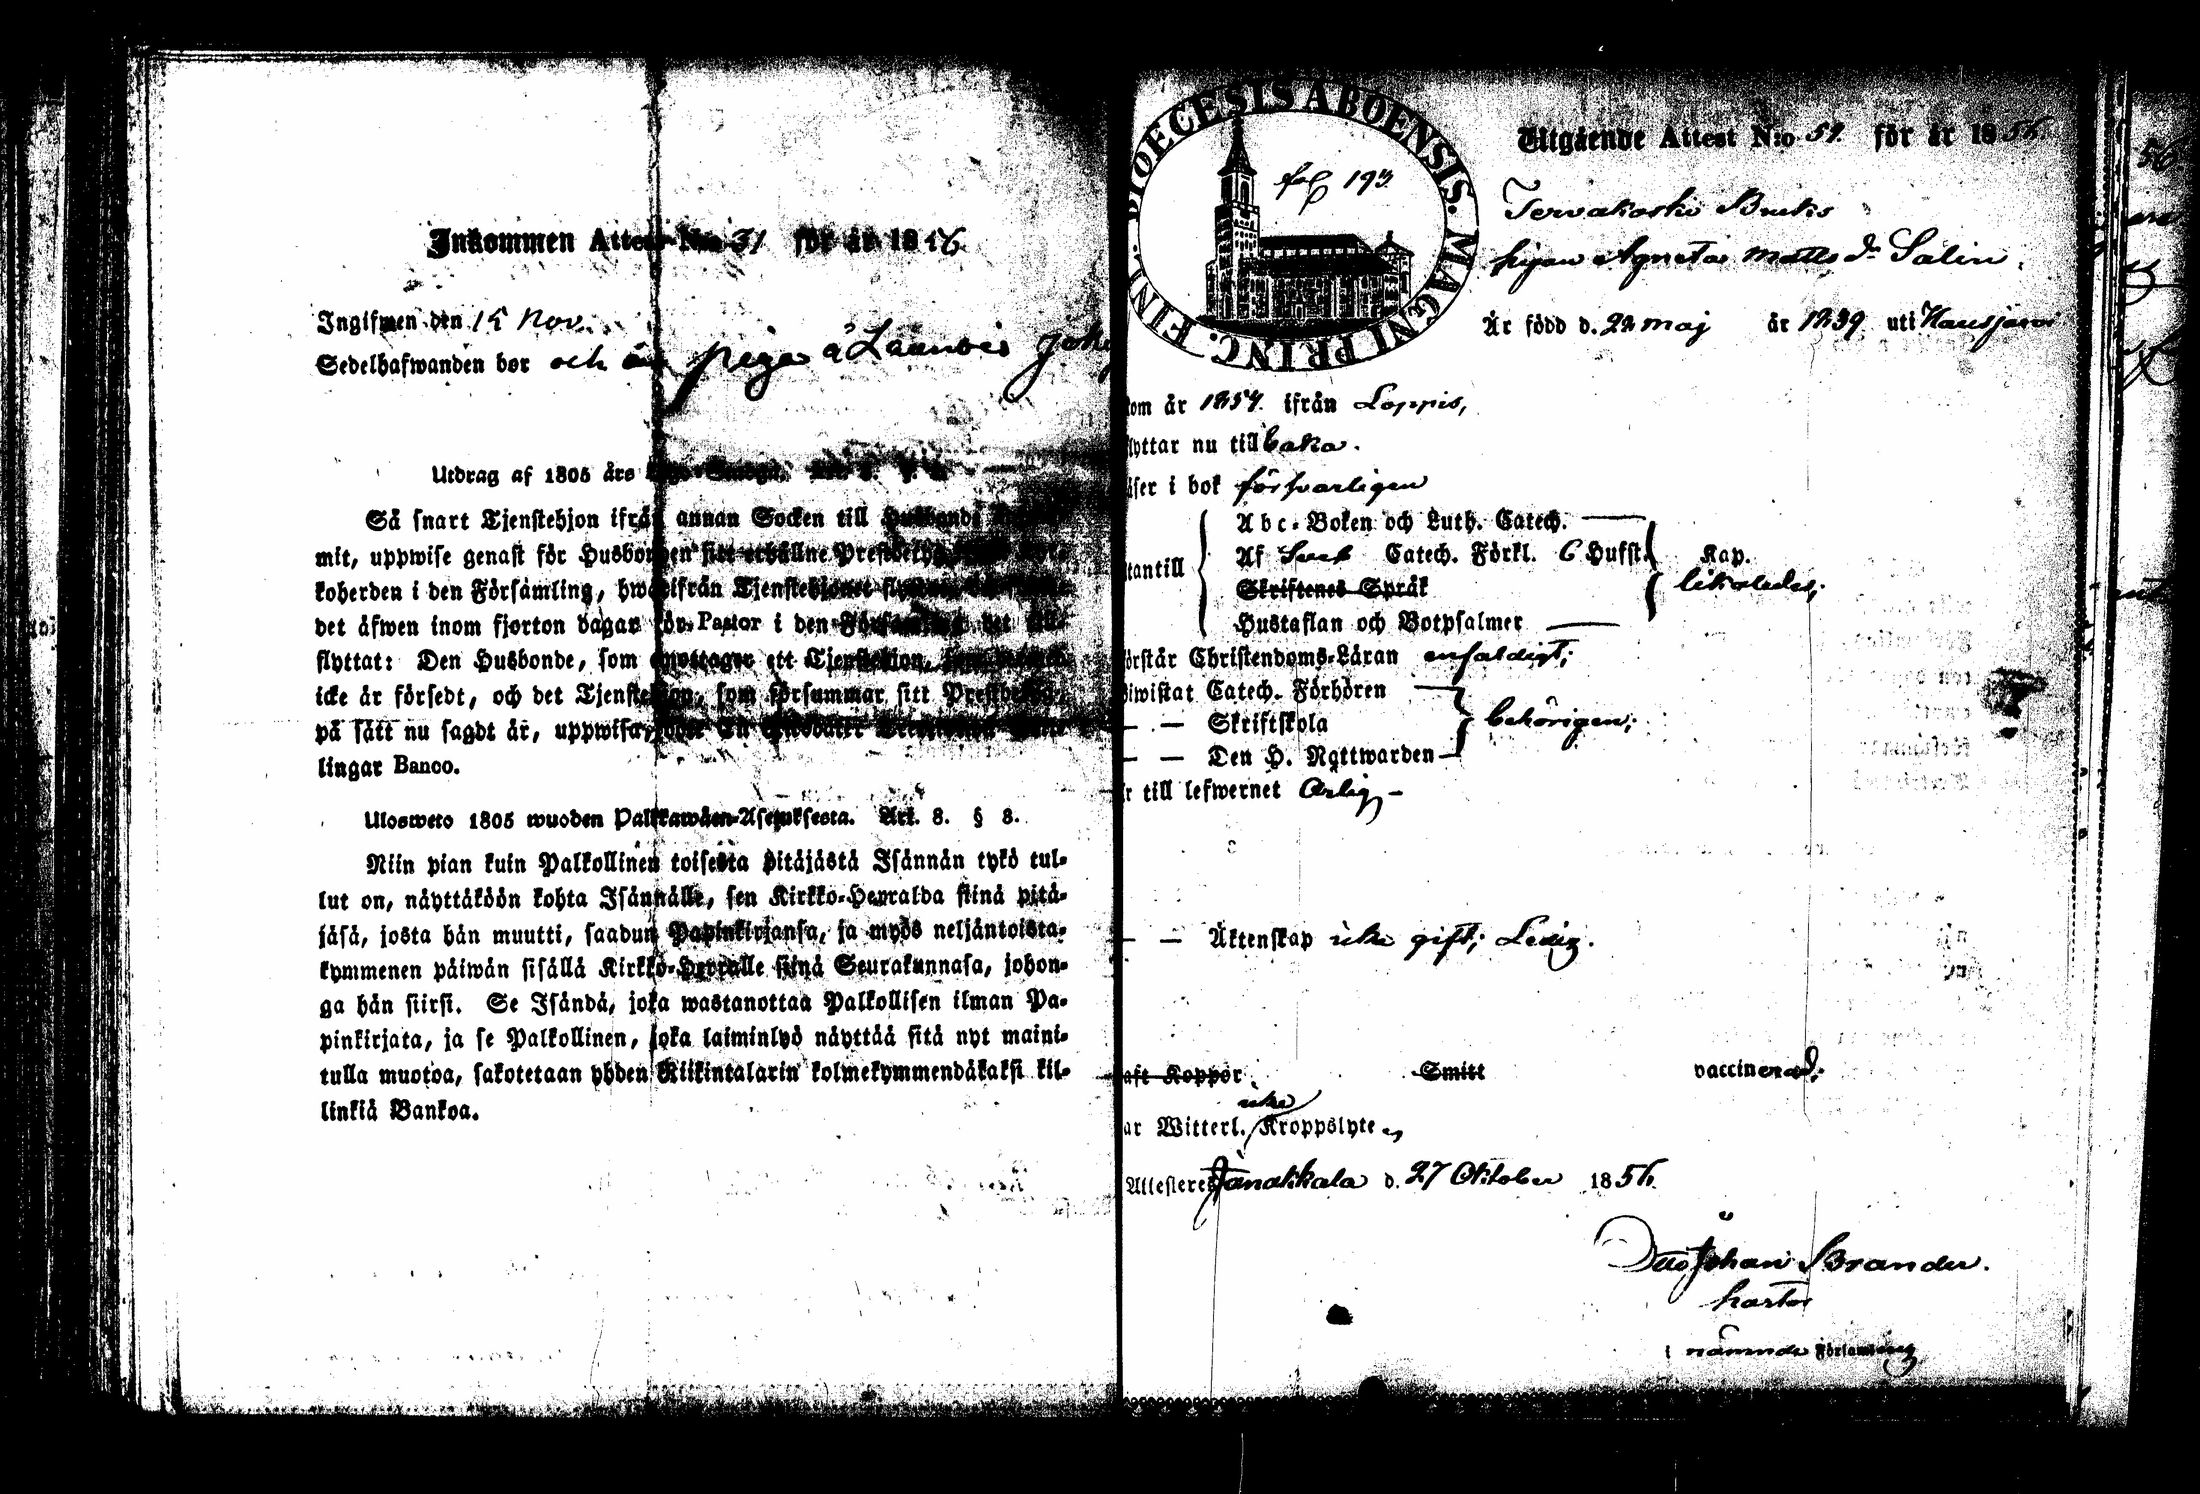 Inkommen Attest N:o 31 för år 1856
Ingifwen den 15 Nov.
Sedelhafwanden bor och är piga å Laanois
Utdrag af 1805 års
Så snart Tjenstehjon ifrån annan Socken till Husbonde
mit, uppwise genast för Husbonden sitt erhållne Prestbetyg
koherden i den Församling, hwarifrån Tjenstehjonet
det äfwen inom fjorton dagar för Pastor i den Församling det
flyttat: Den Husbonde, som emottager ett Tjenstehjon,
icke är försedt, och det Tjenstehjon, som försummar sitt
på sätt nu sagdt är, uppwisa,
lingar Banco.
Ulosweto 1805 wuoden Palkkawäen-Asetuksesta. Art. 8. § 8.
Niin pian kuin Palkollinen toisesta pitäjästä Isännän tykö tul-
lut on, näyttäköön kohta Isännälle, sen Kirkko-Herralda siinä pitä-
jäsä, josta hän muutti, saadun Papinkirjansa, ja myös neljäntoista-
kymmenen päiwän sisällä Kirkko-Herralle siinä Seurakunnasa, johon-
ga hän siirsi. Se Isändä, joka wastanottaa Palkollisen ilman Pa-
pinkirjata, ja se Palkollinen, joka laiminlyö näyttää sitä nyt maini-
tulla muotoa, sakotetaan yhden Riikintalarin kolmekymmendäkaksi kil-
linkiä Bankoa.
DIOECESIS ABOENSIS. MAGNI PRINC. FINL.
fol 193.
Utgående Attest N:o 59. för år 1856
Tervakoski Bruks
pigan Agneta Matts dr Salin.
Är född d. 22 maj år 1839 uti Hausjärvi
kom år 1854. ifrån Loppis,
flyttar nu tillbaka.
läser i bok försvarligen
utantill
Abc-Boken och Luth. Catech.
Af Sveb Catech. Förkl. 6 Hufst. Kap.
Skriftenes Språk
likaledes;
Hustaflan och Botpsalmer
förstår Christendoms-Läran enfaldigt;
biwistat Catech. Förhören
— — Skriftskola behörigen;
— — Den H. Nattwarden
är till lefwernet Ärlig, -
— — Äktenskap icke gift; Ledig.
haft Koppor Smitt vaccinerad;
icke
har Witterl. Kroppslyte,
Attesteres Janakkala d. 27 Oktober 1856.
Otto Johan Brander.
i nämnde Församling